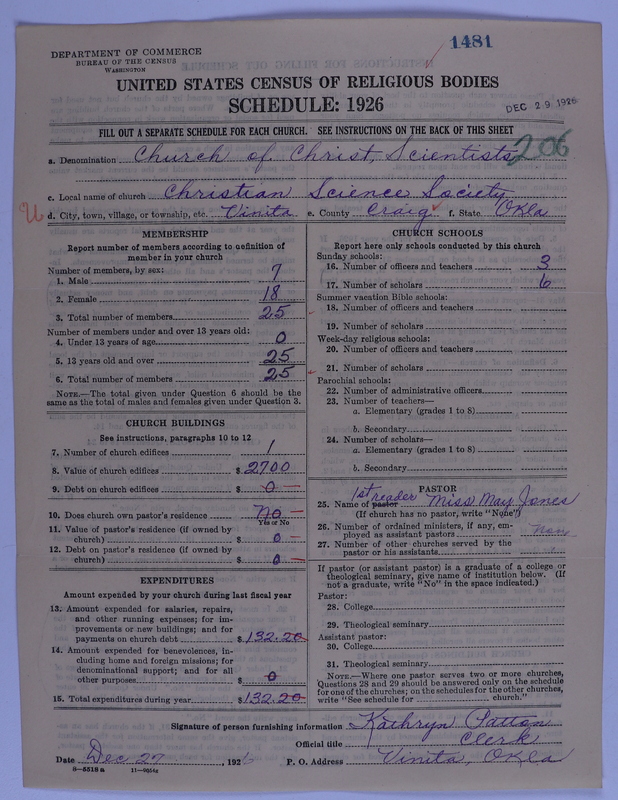 1481
DEPARTMENT OF COMMERCE
BUREAU OF THE CENSUS
WASHINGTON
UNITED STATES CENSUS OF RELIGIOUS BODIES
SCHEDULE: 1926
DEC 29 1926
FILL OUT A SEPARATE SCHEDULE FOR EACH CHURCH. SEE INSTRUCTIONS ON THE BACK OF THIS SHEET
206
a. Denomination Church of Christ, Scientists
c. Local name of church Christian Science Society
d. City, town, village, or township, etc. Vinita e. County Craig f. State Okla
MEMBERSHIP
Report number of members according to definition of
member in your church
Number of members, by sex:
1. Male 7
2. Female 18
3. Total number of members 25
Number of members under and over 13 years old:
4. Under 13 years of age 0
5. 13 years old and over 25
6. Total number of members 25
NOTE.—The total given under Question 6 should be
same as the total of males and females given under Question 3.
CHURCH BUILDINGS
See instructions, paragraphs 10 to 12
7. Number of church edifices 1
8. Value of church edifices $ 2700
9. Debt on church edifices $ 0
10. Does church own pastor's residence No
Yes or No
11. Value of pastor's residence (if owned by
church) $ 0
12. Debt on pastor's residence (if owned by
church) $ 0
EXPENDITURES
Amount expended by your church during last fiscal year
13. Amount expended for salaries, repairs,
and other running expenses; for im-
provements or new buildings; and for
payments on church debt $ 132.20
14. Amount expended for benevolences, in-
cluding home and foreign missions; for
denominational support; and for all
other purposes $ 0
15. Total expenditures during year $ 132.20
CHURCH SCHOOLS
Report here only schools conducted by this church
Sunday schools:
16. Number of officers and teachers 3
17. Number of scholars 6
Summer vacation Bible schools:
18. Number of officers and teachers
19. Number of scholars
Week-day religious schools:
20. Number of officers and teachers
21. Number of scholars
Parochial schools:
22. Number of administrative officers
23. Number of teachers—
a. Elementary (grades 1 to 8)
b. Secondary
24. Number of scholars—
a. Elementary (grades 1 to 8)
b. Secondary
PASTOR
1st reader
25. Name of pastor Miss May Jones
(If church has no pastor, write "None")
26. Number of ordained ministers, if any, em-
ployed as assistant pastors None
27. Number of other churches served by the
pastor or his assistants
If pastor (or assistant pastor) is a graduate of a college or
theological seminary, give name of institution below. (If
not a graduate, write "No" in the space indicated.)
Pastor:
28. College
29. Theological seminary
Assistant pastor:
30. College
31. Theological seminary
NOTE.—Where one pastor serves two or more churches,
Questions 28 and 29 should be answered only on the schedule
for one of the churches; on the schedules for the other churches,
write "See schedule for church."
Signature of person furnishing information Kathryn Patton
Official title Clerk
Date Dec 27, 1926 P. O. Address Vinita, Okla
8-5518a 11-9014c